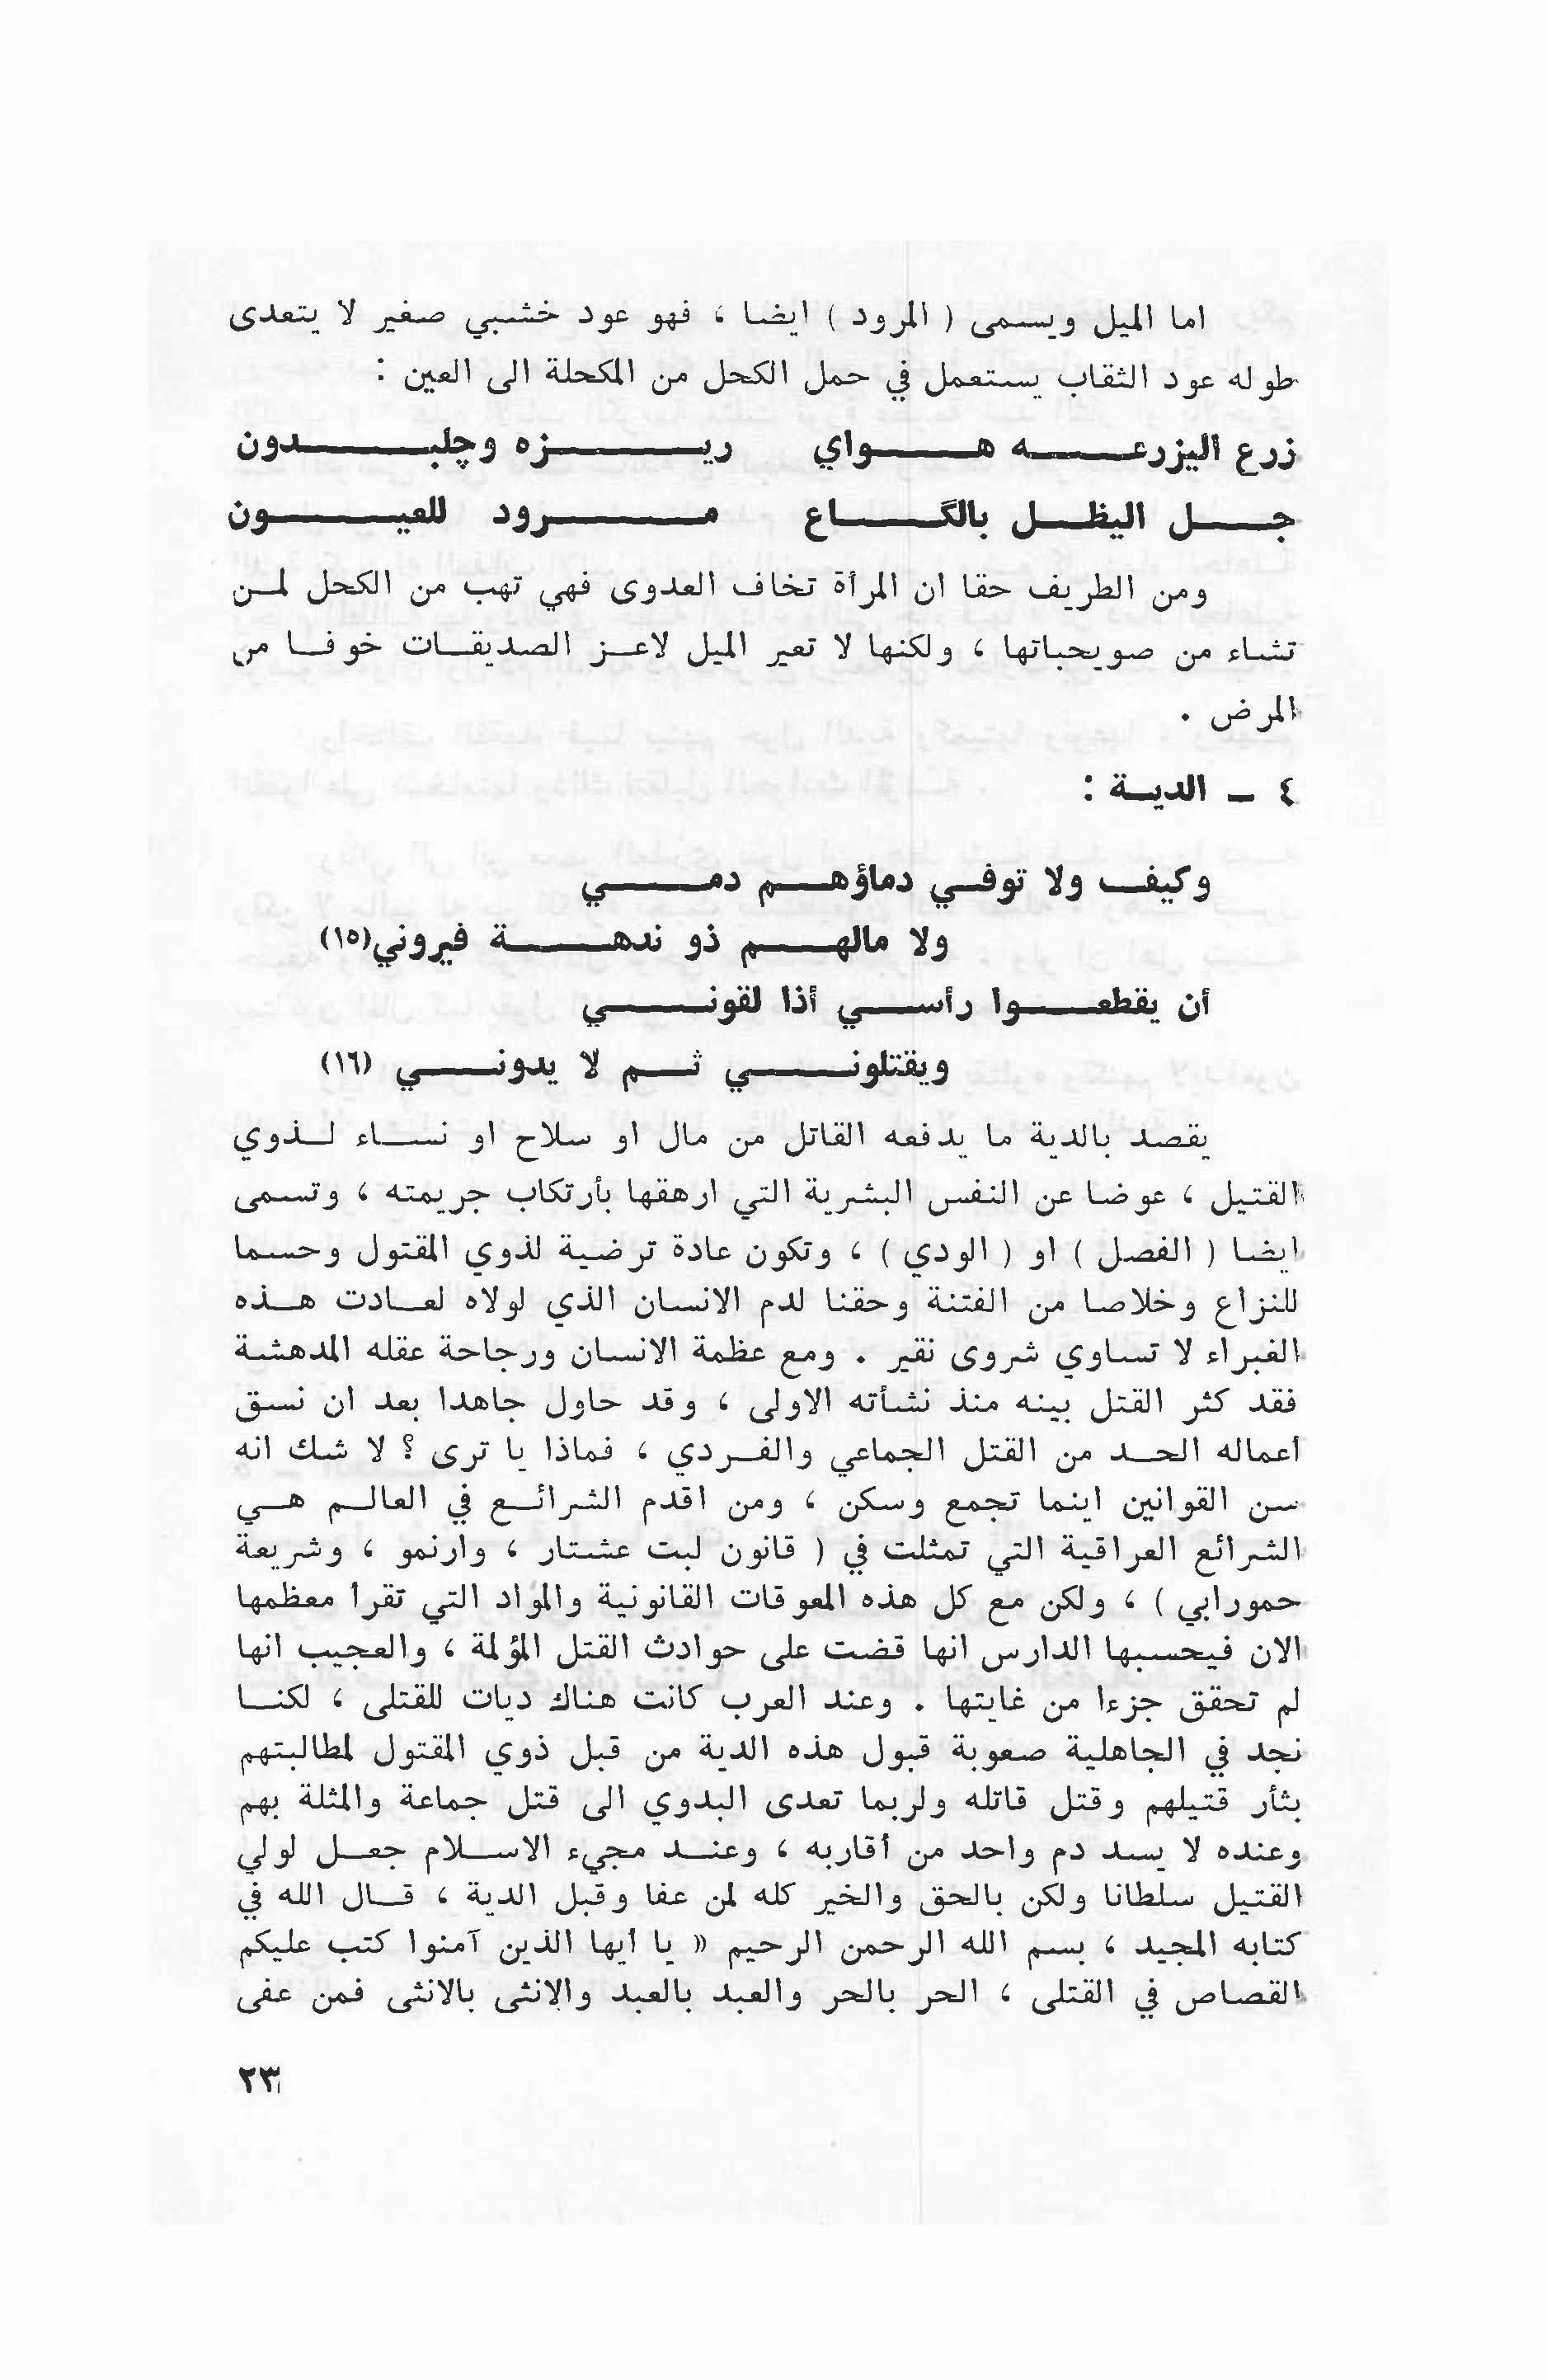 اما الميل ويسمى ( المرود ) ايضا ، فهو عود خشبي صغير لا يتعدى
طوله عود الثقاب يستعمل في حمل الكحل من المكحلة الى العين :
زرع اليزرعه هواي ريزه وچلبدون
جل اليظل بالگاع مرود للعيون
ومن الطريف حقا ان المرأة تخاف العدوى فهي تهب من الكحل لمن
تشاء من صويحباتها ، ولكنها لا تعير الميل لاعز الصديقات خوفا من
المرض .
٤ – الدية :
وكيف ولا توفي دماؤهم دمي
ولا مالهم ذو ندهة فيروني(١٥)
أن يقطعوا رأسي أذا لقوني
ويقتلوني ثم لا يدوني (١٦)
يقصد بالدية ما يدفعه القاتل من مال او سلاح او نساء لذوي
القتيل ، عوضا عن النفس البشرية التي ارهقها بأرتكاب جريمته ، وتسمى
ايضا ( الفصل ) او ( الودي ) ، وتكون عادة ترضية لذوي المقتول وحسما
للنزاع وخلاصا من الفتنة وحقنا لدم الانسان الذي لولاه لعادت هذه
الغبراء لا تساوي شروى نقير . ومع عظمة الانسان ورجاحة عقله المدهشة
فقد كثر القتل بينه منذ نشأته الاولى ، وقد حاول جاهدا بعد ان نسق
أعماله الحد من القتل الجماعي والفردي ، فماذا يا ترى ؟ لا شك انه
سن القوانين اينما تجمع وسكن ، ومن اقدم الشرائع في العالم هي
الشرائع العراقية التي تمثلت في ( قانون لبت عشتار ، وارنمو ، وشريعة
حمورابي ) ، ولكن مع كل هذه المعوقات القانونية والمواد التي تقرأ معظمها
الان فيحسبها الدارس انها قضت على حوادث القتل المؤلمة ، والعجيب انها
لم تحقق جزءا من غايتها . وعند العرب كانت هناك ديات للقتلى ، لكنا
نجد في الجاهلية صعوبة قبول هذه الدية من قبل ذوي المقتول لمطالبتهم
بثأر قتيلهم وقتل قاتله ولربما تعدى البدوي الى قتل جماعة والمثلة بهم
وعنده لا يسد دم واحد من أقاربه ، وعند مجيء الاسلام جعل لولي
القتيل سلطانا ولكن بالحق والخير كله لمن عفا وقبل الدية ، قال الله في
كتابه المجيد ، بسم الله الرحمن الرحيم « يا ايها الذين آمنوا كتب عليكم
القصاص في القتلى ، الحر بالحر والعبد بالعبد والانثى بالانثى فمن عفى
٢٣